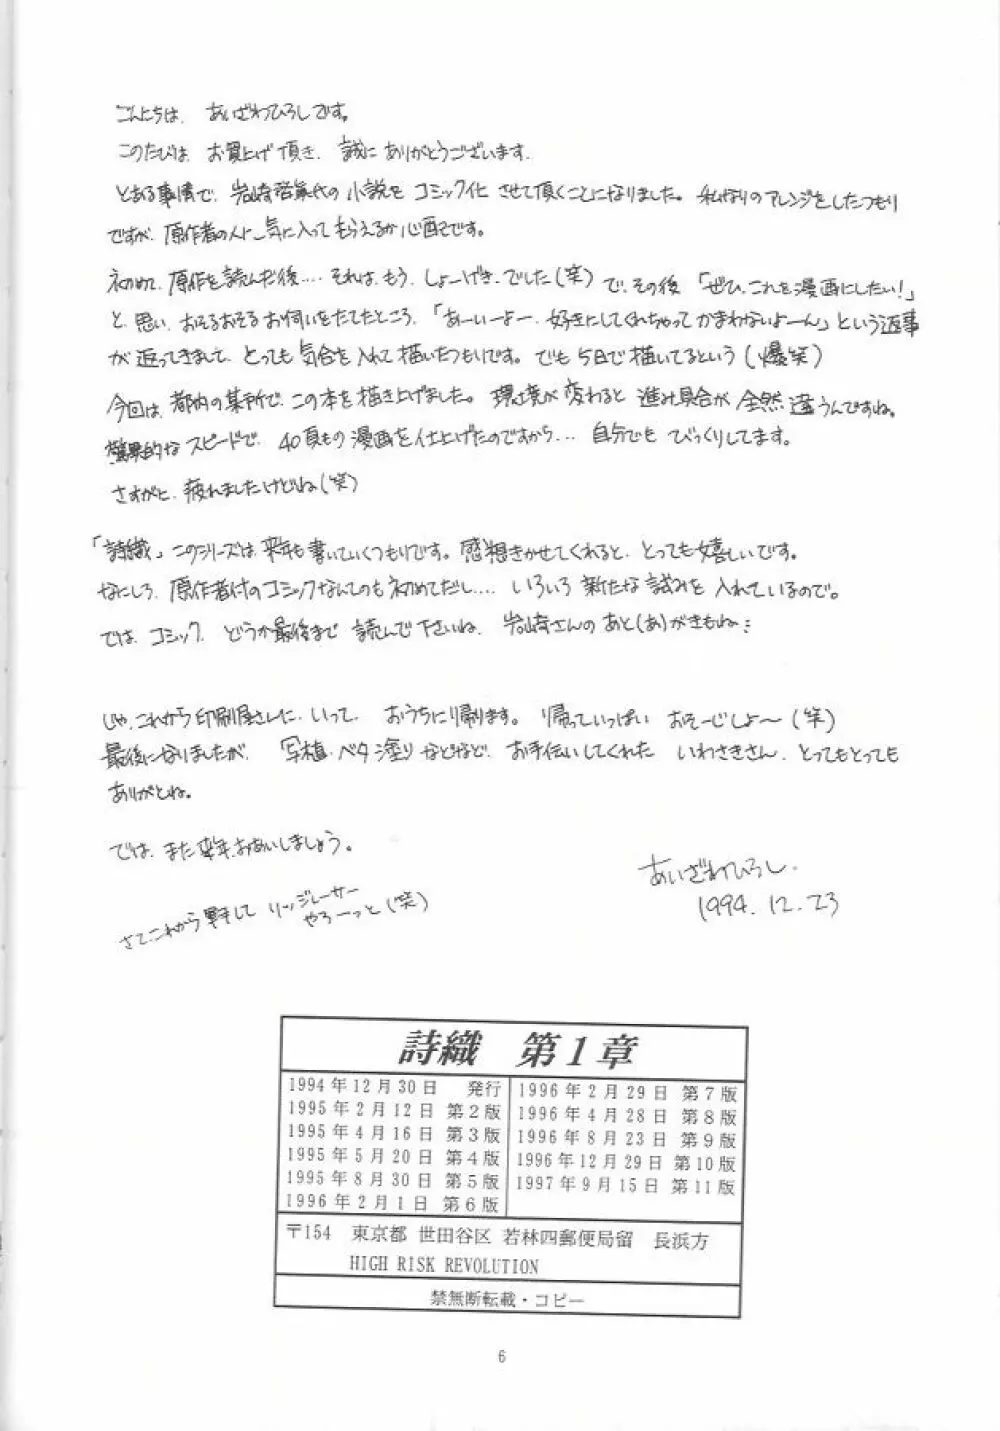 こんにちは、あいざわひろしです。
このたびは、お買上げ頂き、誠にありがとうございます。
とある事情で、岩崎啓眞代の小説をコミック化させて頂くことになりました。私なりのアレンジをしたつもり
ですが、原作者の人に気に入ってもらえるか心配です。
初めて、原作を読んだ後‥‥それは、もう、しょーげき、でした(笑) で、その後「ぜひ、これを漫画にしたい!」
と、思い、おそるおそるお伺いをたてたところ、「あーいーよー、好きにしてくれちゃってかまわないよーん」という返事
が返ってきまして、とっても気合を入れて描いたつもりです。でも5日で描いてるという(爆笑)
今回は、都内の某所で、この本を描き上げました。環境が変わると進み具合が全然違うんですね。
驚異的なスピードで、40頁もの漫画を仕上げたのですから‥‥自分でもびっくりしてます。
さすがに、疲れましたけどね(笑)
「詩織」このシリーズは、来年も書いていくつもりです。感想きかせてくれると、とっても嬉しいです。
なにしろ、原作者付のコミックなんてのも初めてだし‥‥いろいろ新たな試みを入れているので。
では、コミック、どうか最後まで読んで下さいね、岩崎さんのあと(あ)がきもね‥
じゃ、これから印刷屋さんに、いって、おうちに帰ります。帰っていっぱいおそーじしよ〜(笑)
最後になりましたが、写植・ベタ塗りなどなど、お手伝いしてくれたいわさきさん、とってもとっても
ありがとね。
では、また来年、おあいしましょう。
あいざわひろし.
1994.12.23
さて、これから リッジレーサー
やろーっと(笑)
詩織 第1章
1994年12月30日 発行
1995年2月12日 第2版
1995年4月16日 第3版
1995年5月20日 第4版
1995年8月30日 第5版
1996年2月1日 第6版
1996年2月29日 第7版
1996年4月28日 第8版
1996年8月23日 第9版
1996年12月29日 第10版
1997年9月15日 第11版
〒154 東京都 世田谷区 若林四郵便局留 長浜方
HIGH RISK REVOLUTION
禁無断転載・コピー
6